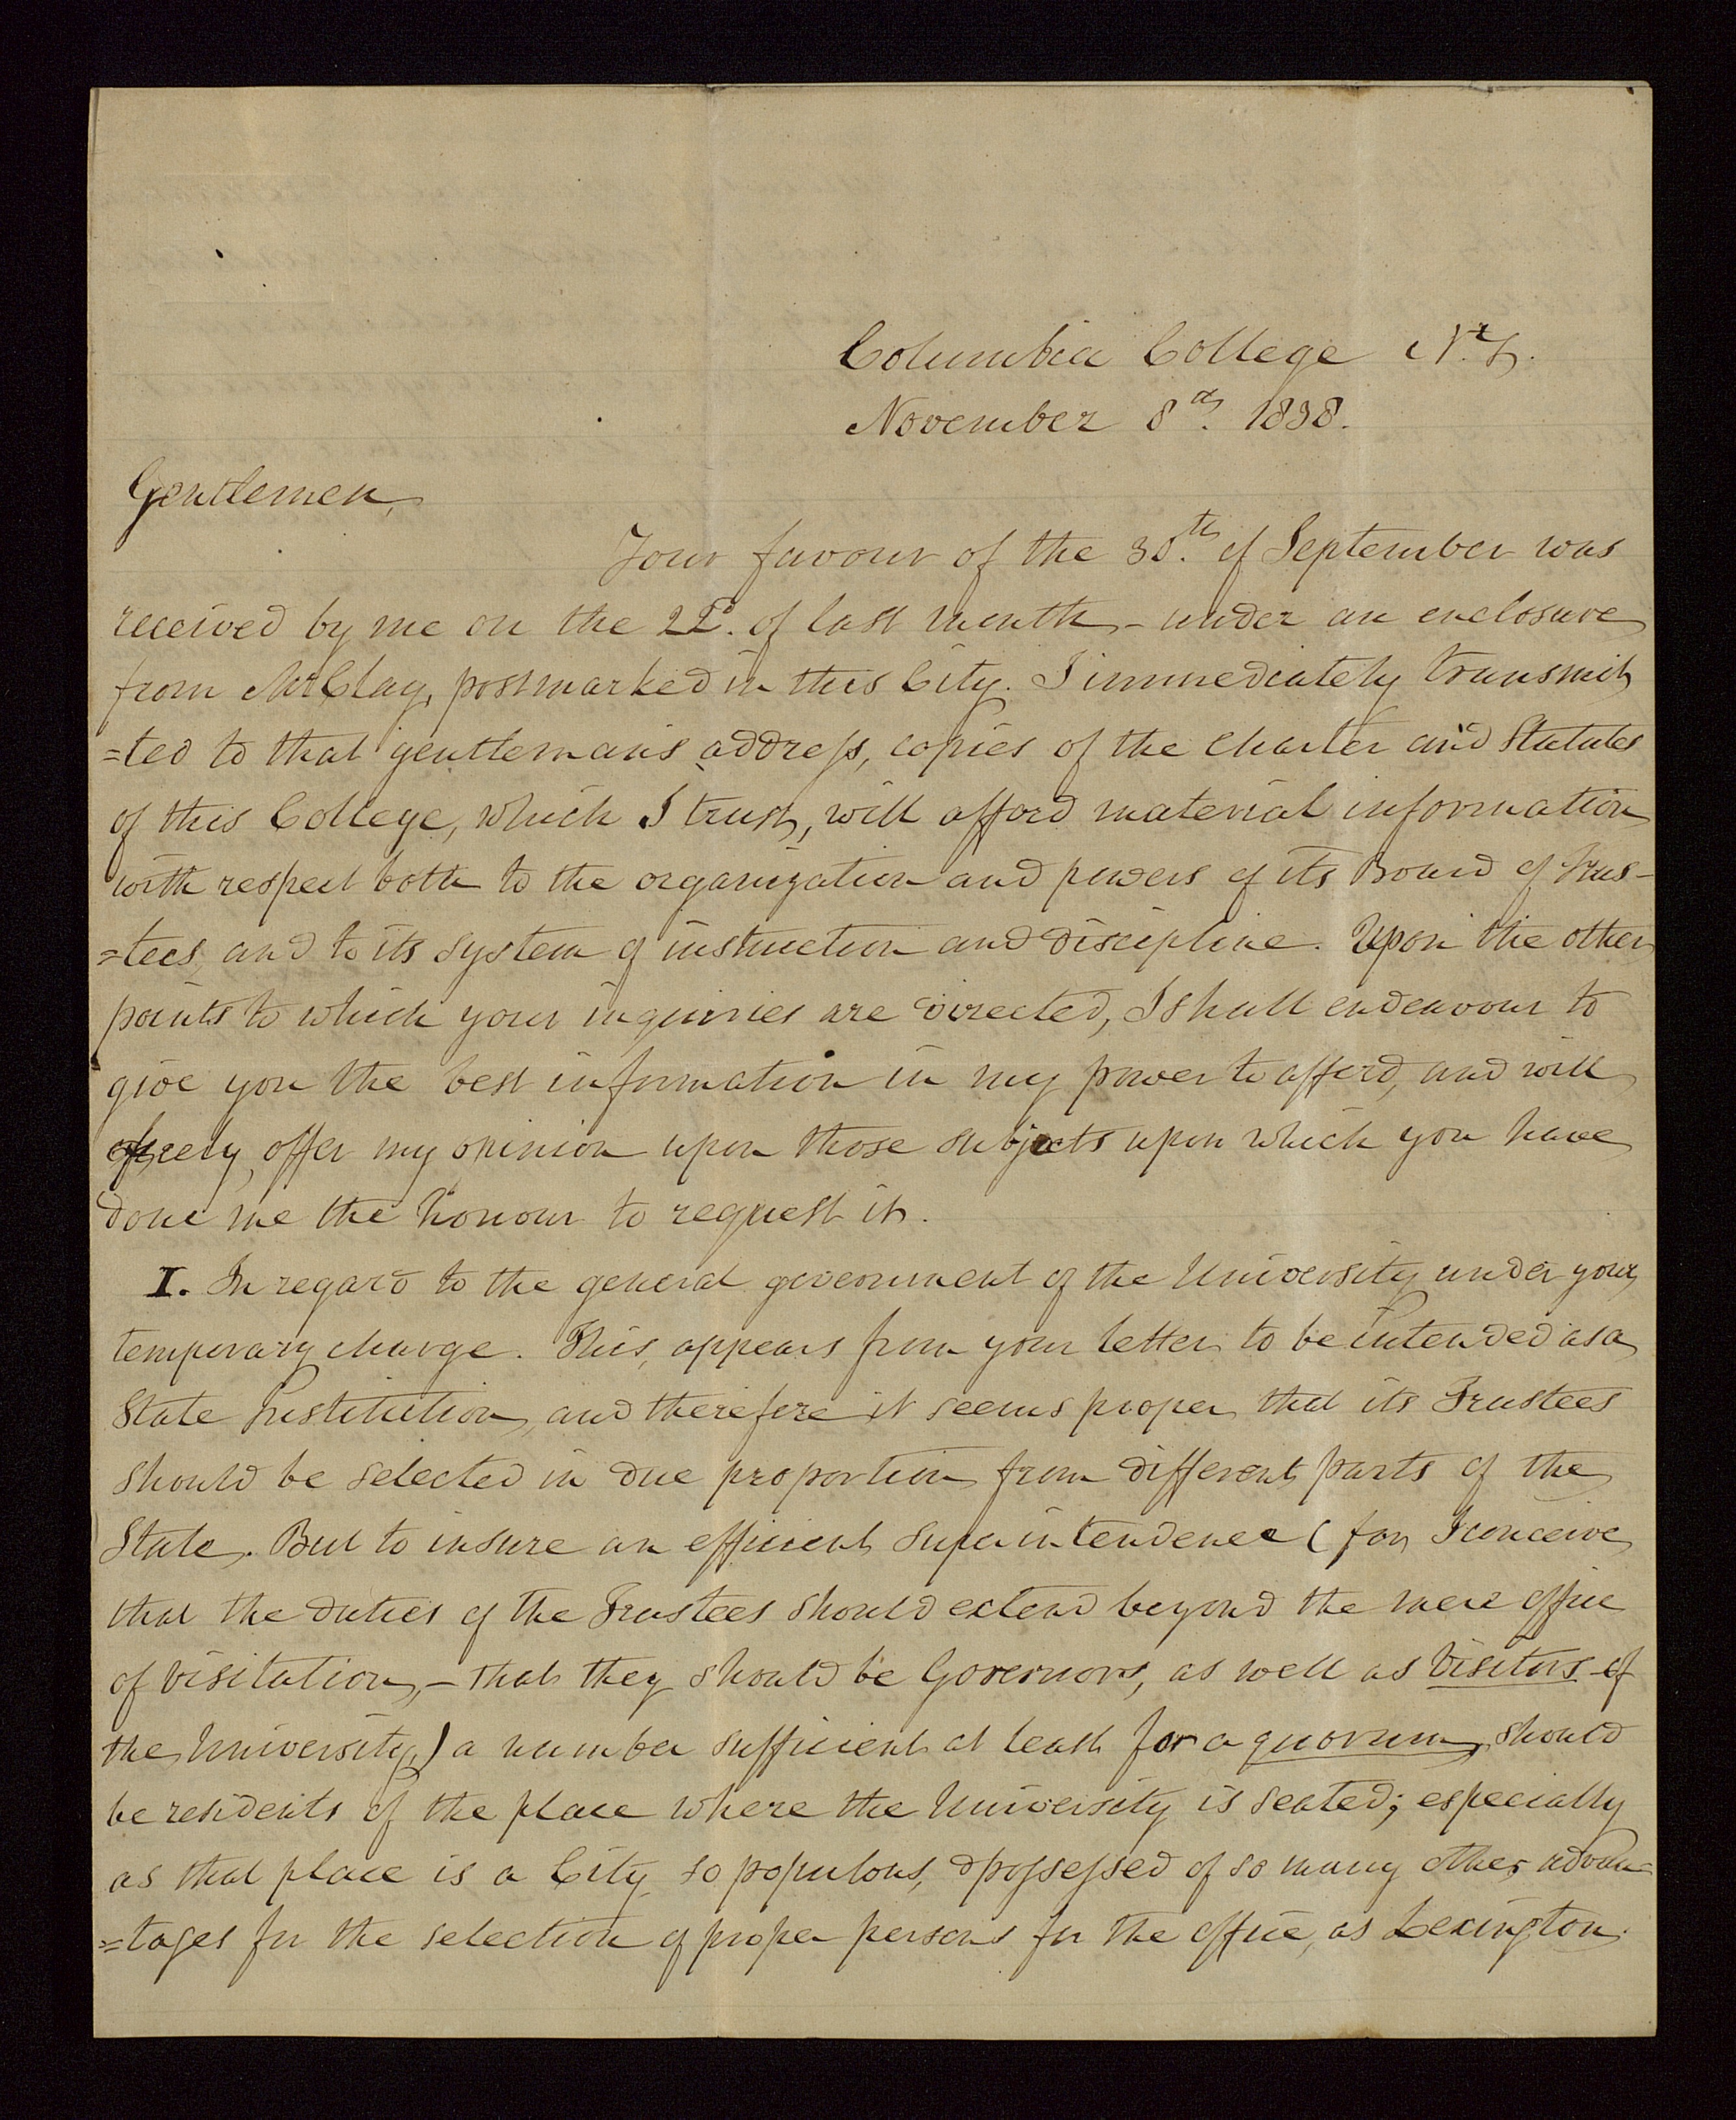 Columbia College N.Y.
November 8th. 1838.
Gentlemen,
Your favour of the 30th. of September was
received by me on the 22d. of last month – under an enclosure
from Mr Clay, postmarked in this City. I immediately transmit
=ted to that gentleman's address, copies of the Charter and Statutes
of this College, which I trust, will afford material information
with respect both to the organization and powers of its Board of Trus-
=tees, and to its system of instruction and discipline. Upon the other
points to which your inquiries are directed, I shall endeavour to
give you the best information in my power to afford, and will
freely offer my opinion upon those subjects upon which you have
done me the honour to request it.
I. In regard to the general government of the University under your
temporary charge. This, appears from your letter to be intended as a
State Institution, and therefore it seems proper that its Trustees
should be selected in due proportion from different parts of the
State. But to insure an efficient superintendence (for I conceive
that the duties of the Trustees should extend beyond the mere office
of visitation, – that they should be Governors, as well as Visitors of
the University,) a number sufficient at least for a quorum, should
be residents of the place where the University is seated; especially
as that place is a City so populous, & possessed of so many other advan=
=tages for the selection of proper persons for the office, as Lexington.